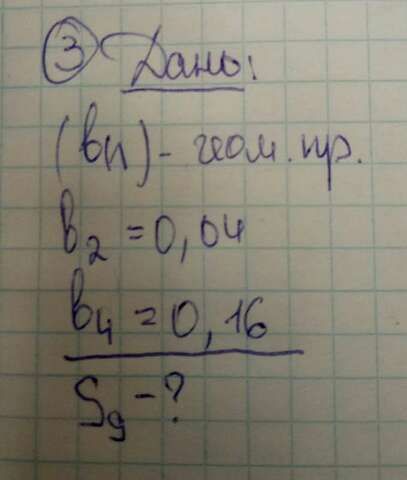 ③ Дано:
(bn) - геом. пр.
b2 = 0,04
b4 = 0,16
S9 - ?